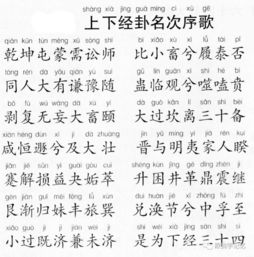 shàng xià jīng guà míng cì xù gē
上下经卦名次序歌
qián kūn tún méng xū sòng shī bǐ xiǎo xù xī lǚ tài pǐ
乾坤屯蒙需讼师 比小畜兮履泰否
tóng rén dà yǒu qiān yù suí gǔ lín guān xī shì kè bì
同人大有谦豫随 蛊临观兮噬嗑贲
bō fù wú wàng dà xù yí dà guò kǎn lí sān shí bèi
剥复无妄大畜颐 大过坎离三十备
xián héng dùn xī jí dà zhuàng jìn yǔ míng yí jiā rén kuí
咸恒遯兮及大壮 晋与明夷家人睽
jiǎn jiě sǔn yì guài gòu cuì shēng kùn jǐng gé dǐng zhèn jì
蹇解损益夬姤萃 升困井革鼎震继
gèn jiàn guī mèi fēng lǚ xùn duì huàn jié xī zhōng fú zhì
艮渐归妹丰旅巽 兑涣节兮中孚至
xiǎo guò jì jì jiān wèi jì shì wéi xià jīng sān shí sì
小过既济兼未济 是为下经三十四